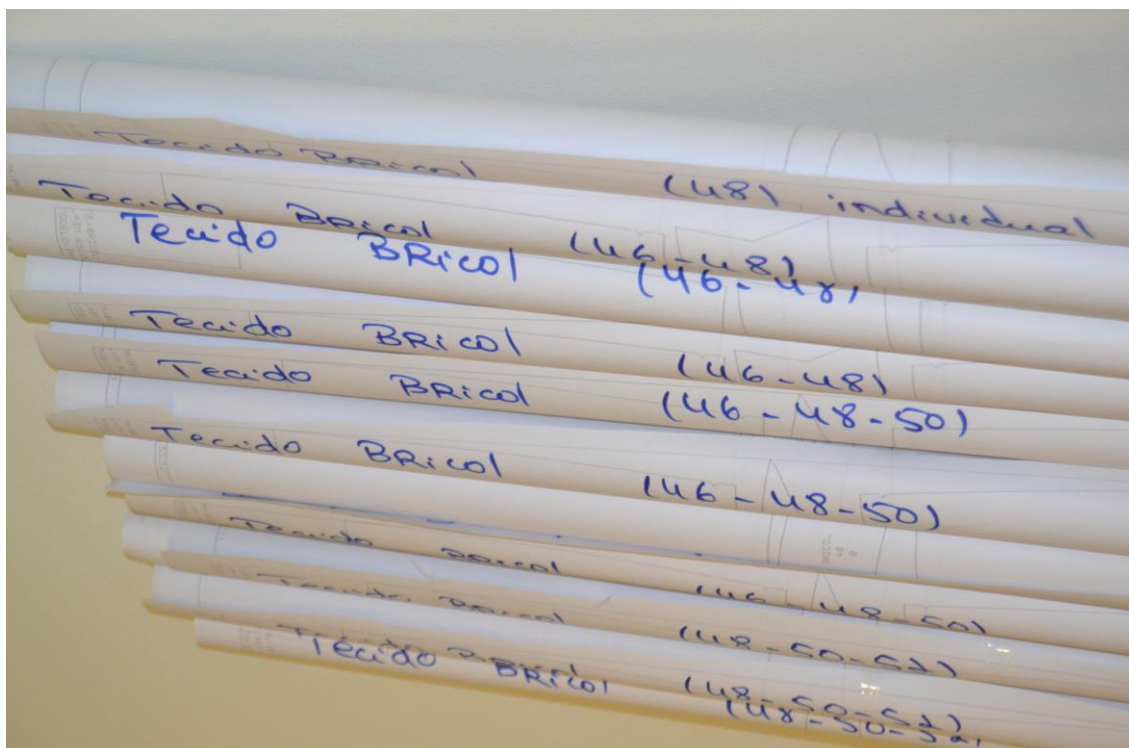 Tecido BRicol (48) individual
Tecido BRicol (46-48)
Tecido BRicol (46-48)
Tecido BRicol (46-48)
Tecido BRicol (46-48-50)
Tecido BRicol (46-48-50)
Tecido BRicol (46-48-50)
Tecido BRicol (48-50-52)
Tecido BRicol (48-50-52)
Tecido BRicol (48-50-52)